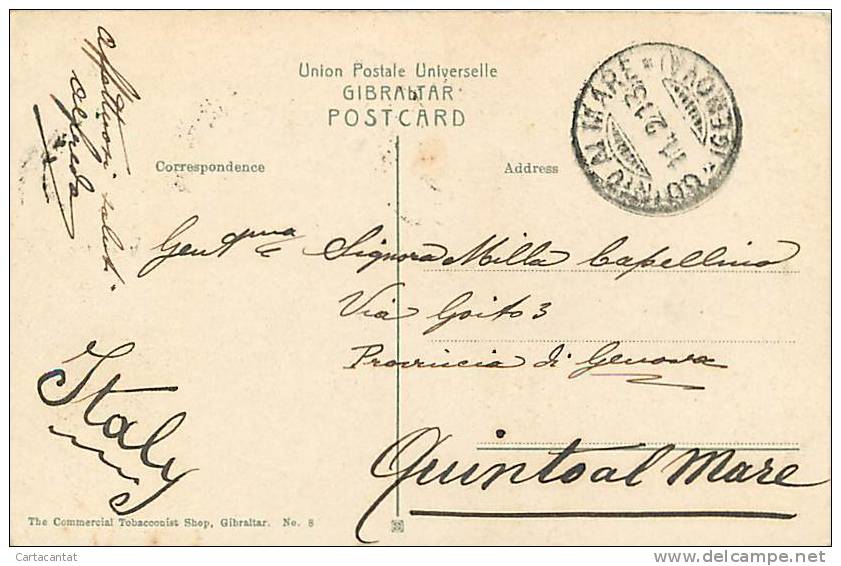 affettuosi saluti
Alfredo
Union Postale Universelle
GIBRALTAR
POST-CARD
Correspondence
Address
QUINTO AL MARE * (GENOVA) *
11.2.13
Gentma
Signora Milla Capellino
Via Goito 3
Provincia di Genova
Quinto al Mare
Italy
The Commercial Tobacconist Shop, Gibraltar. No. 8
Cartacantat
delcampe.net